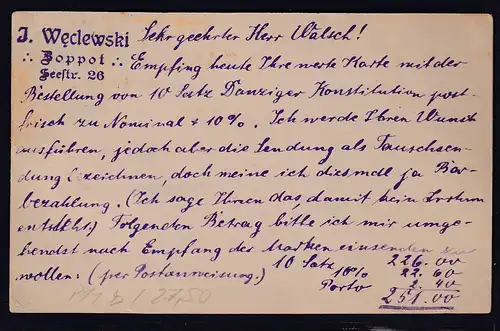 J. Węclewski
∴ Zoppot ∴
Seestr. 26
Sehr geehrter Herr Walsch!
Empfing heute Ihre werte Karte mit der
Bestellung von 10 Satz Danziger Konstitution post-
frisch zu Nominal + 10%. Ich werde Ihren Wunsch
ausführen, jedoch aber die Sendung als Tauschsen-
dung bezeichnen, doch meine ich diesmal ja Bar-
bezahlung. (Ich sage Ihnen das, damit kein Irrtum
entsteht.) Folgenden Betrag bitte ich mir umge-
hendst nach Empfang der Marken einsenden zu
wollen: (per Postanweisung.)
10 Satz 226.00
10% 22.60
Porto 2.40
251.00
27,50